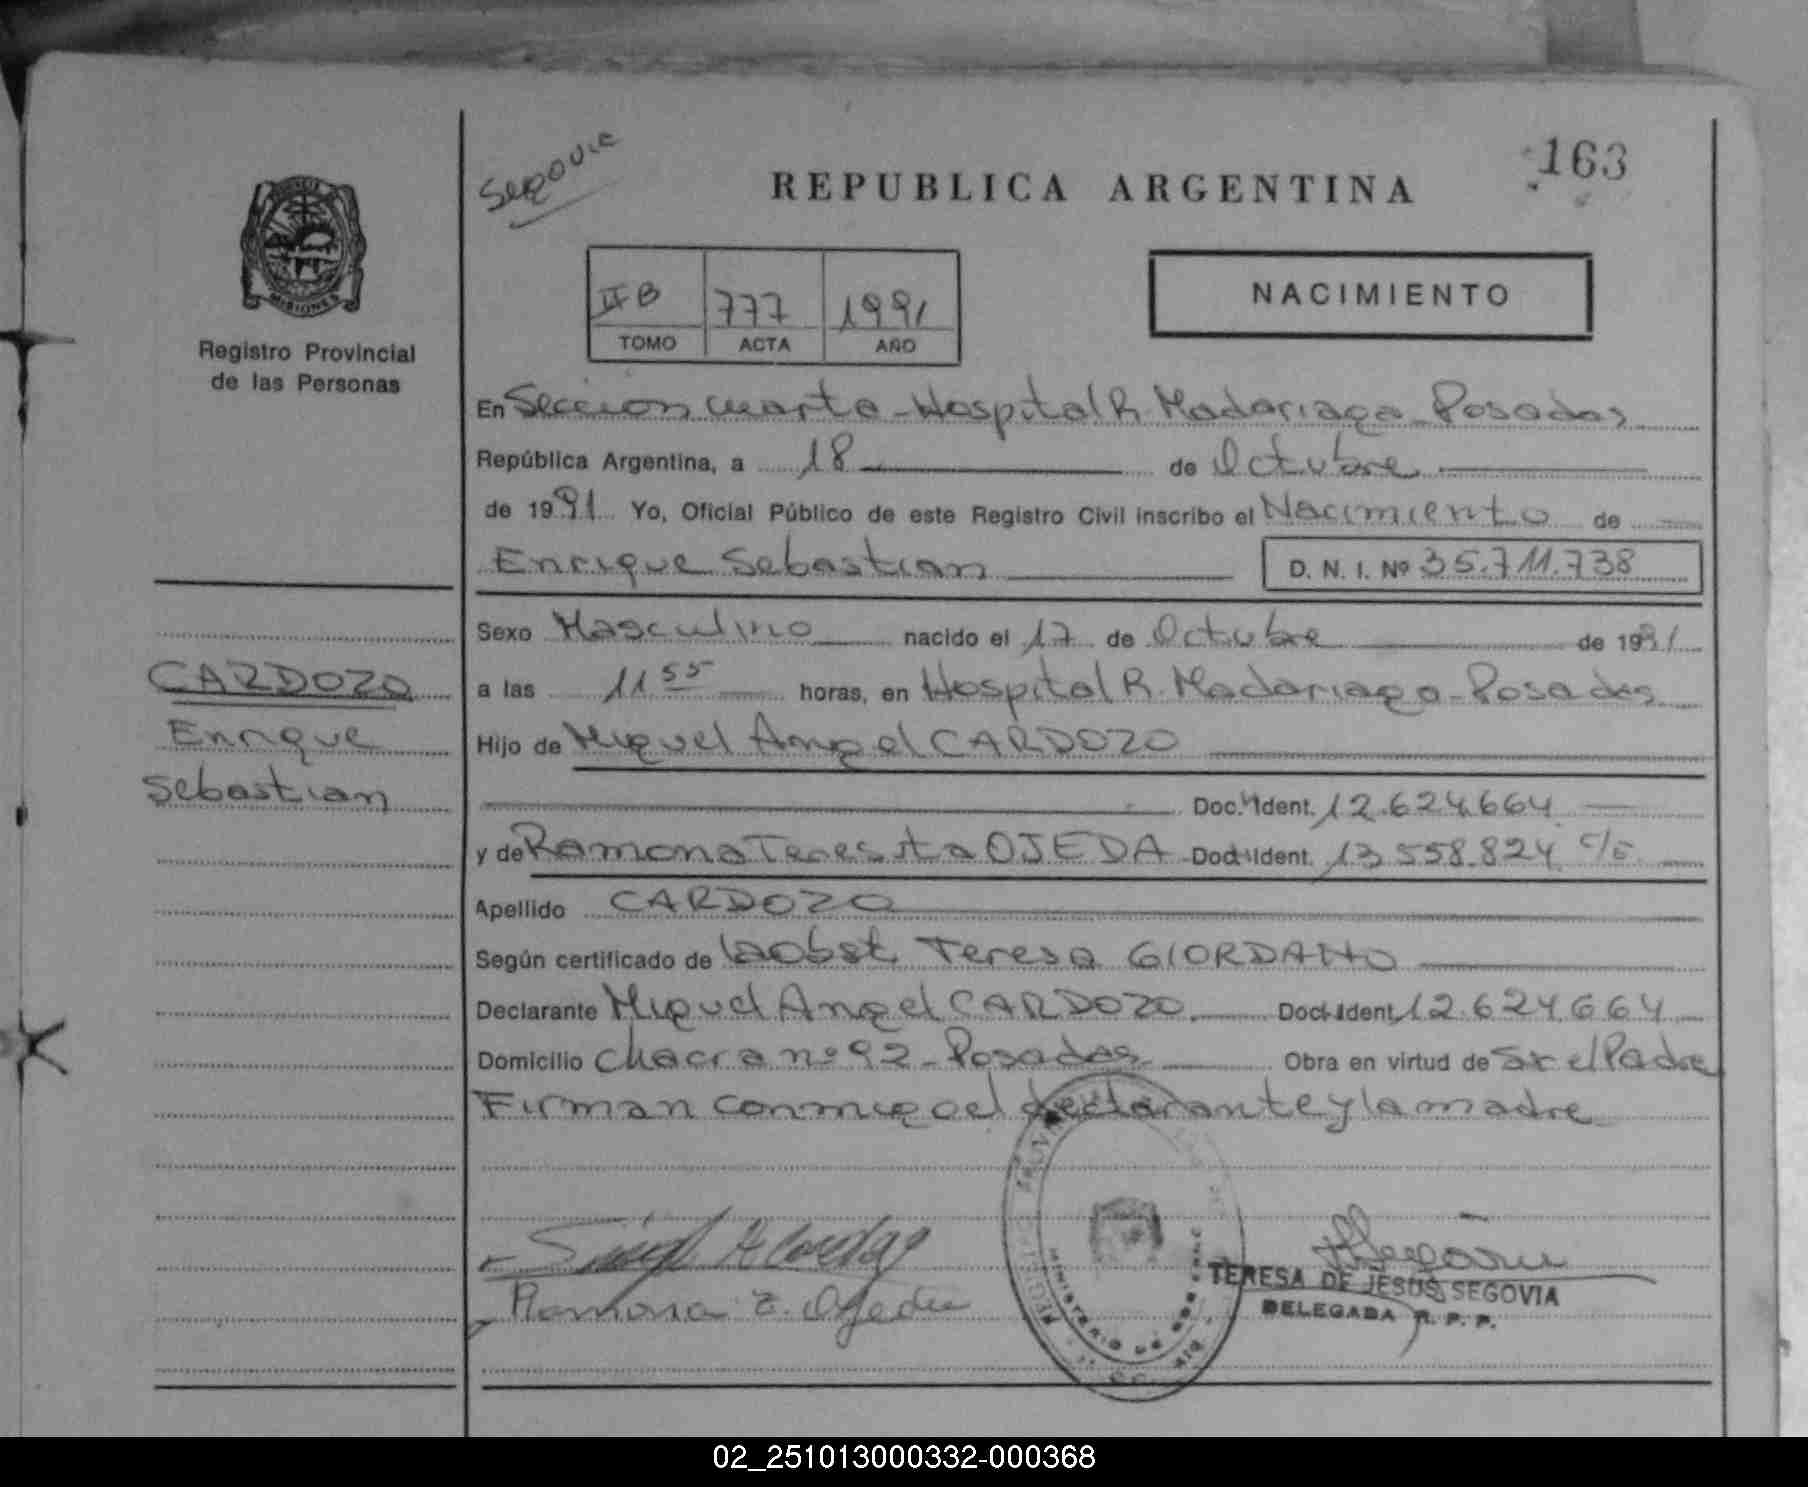 Segovia
163
REPUBLICA ARGENTINA
MISIONES
Registro Provincial
de las Personas
NACIMIENTO
II B 777 1991
TOMO ACTA AÑO
En Sección Cuarta - Hospital R. Madariaga - Posadas
República Argentina, a 18 de Octubre
de 1991 Yo, Oficial Público de este Registro Civil inscribo el Nacimiento de
Enrique Sebastian D. N. I. Nº 35.711.738
Sexo Masculino nacido el 17 de Octubre de 1991
a las 11 55 horas, en Hospital R. Madariaga - Posadas
Hijo de Miguel Angel CARDOZO
Doc. Ident. 12.624.664
y de Ramona Teresita OJEDA Doc. Ident. 13.558.824
Apellido CARDOZO
Según certificado de la Obst. Teresa GIORDANO
Declarante Miguel Angel CARDOZO Doc. Ident. 12.624.664
Domicilio Chacra nº 92 - Posadas Obra en virtud de Ser el Padre
Firman conmigo el declarante y la madre
CARDOZO
Enrique
Sebastian
Ramona T. Ojeda
MINISTERIO DE GOBIERNO
TERESA DE JESUS SEGOVIA
DELEGADA R. P. P.
02_251013000332-000368